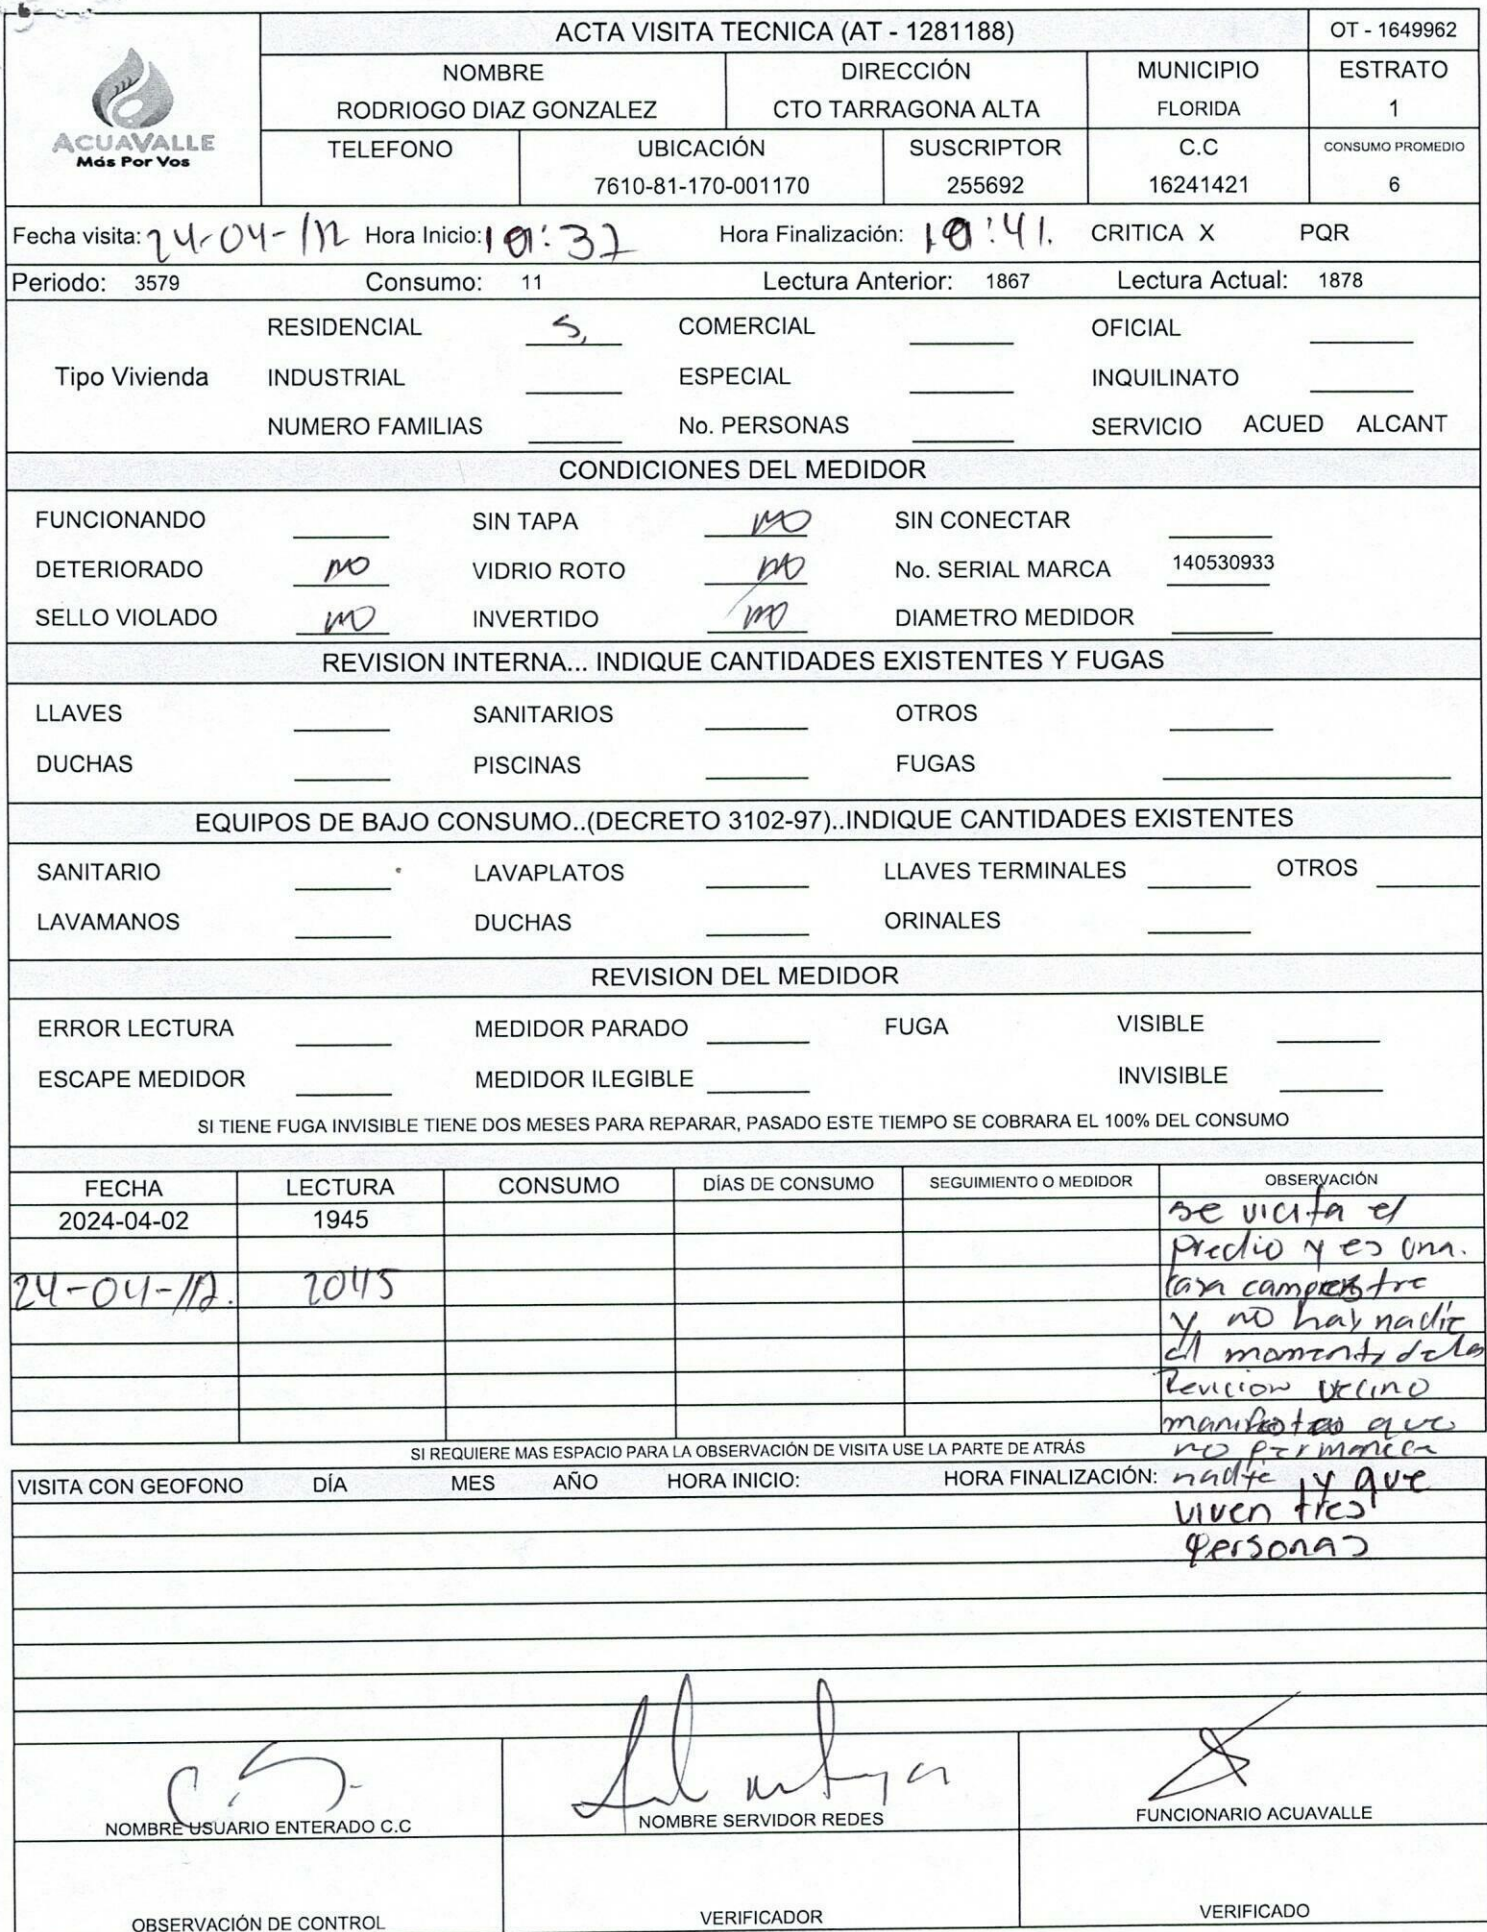 ACTA VISITA TECNICA (AT - 1281188) OT - 1649962
NOMBRE DIRECCIÓN MUNICIPIO ESTRATO
RODRIOGO DIAZ GONZALEZ CTO TARRAGONA ALTA FLORIDA 1
ACUAVALLE
Más Por Vos
TELEFONO UBICACIÓN SUSCRIPTOR C.C CONSUMO PROMEDIO
7610-81-170-001170 255692 16241421 6
Fecha visita: 24-04-12 Hora Inicio: 10:37 Hora Finalización: 10:41. CRITICA X PQR
Periodo: 3579 Consumo: 11 Lectura Anterior: 1867 Lectura Actual: 1878
RESIDENCIAL COMERCIAL OFICIAL
Tipo Vivienda INDUSTRIAL ESPECIAL INQUILINATO
NUMERO FAMILIAS No. PERSONAS SERVICIO ACUED ALCANT
CONDICIONES DEL MEDIDOR
FUNCIONANDO SIN TAPA no SIN CONECTAR
DETERIORADO no VIDRIO ROTO no No. SERIAL MARCA 140530933
SELLO VIOLADO no INVERTIDO no DIAMETRO MEDIDOR
REVISION INTERNA... INDIQUE CANTIDADES EXISTENTES Y FUGAS
LLAVES SANITARIOS OTROS
DUCHAS PISCINAS FUGAS
EQUIPOS DE BAJO CONSUMO..(DECRETO 3102-97)..INDIQUE CANTIDADES EXISTENTES
SANITARIO LAVAPLATOS LLAVES TERMINALES OTROS
LAVAMANOS DUCHAS ORINALES
REVISION DEL MEDIDOR
ERROR LECTURA MEDIDOR PARADO FUGA VISIBLE
ESCAPE MEDIDOR MEDIDOR ILEGIBLE INVISIBLE
SI TIENE FUGA INVISIBLE TIENE DOS MESES PARA REPARAR, PASADO ESTE TIEMPO SE COBRARA EL 100% DEL CONSUMO
FECHA LECTURA CONSUMO DÍAS DE CONSUMO SEGUIMIENTO O MEDIDOR OBSERVACIÓN
2024-04-02 1945
24-04-12. 2045
se vicita el
predio y es una.
casa campestre
y no hay nadie
al momento de la
Revicion vecino
manifiesta que
no permanece
nadie y que
viven tres
personas
SI REQUIERE MAS ESPACIO PARA LA OBSERVACIÓN DE VISITA USE LA PARTE DE ATRÁS
VISITA CON GEOFONO DÍA MES AÑO HORA INICIO: HORA FINALIZACIÓN:
NOMBRE USUARIO ENTERADO C.C NOMBRE SERVIDOR REDES FUNCIONARIO ACUAVALLE
OBSERVACIÓN DE CONTROL VERIFICADOR VERIFICADO